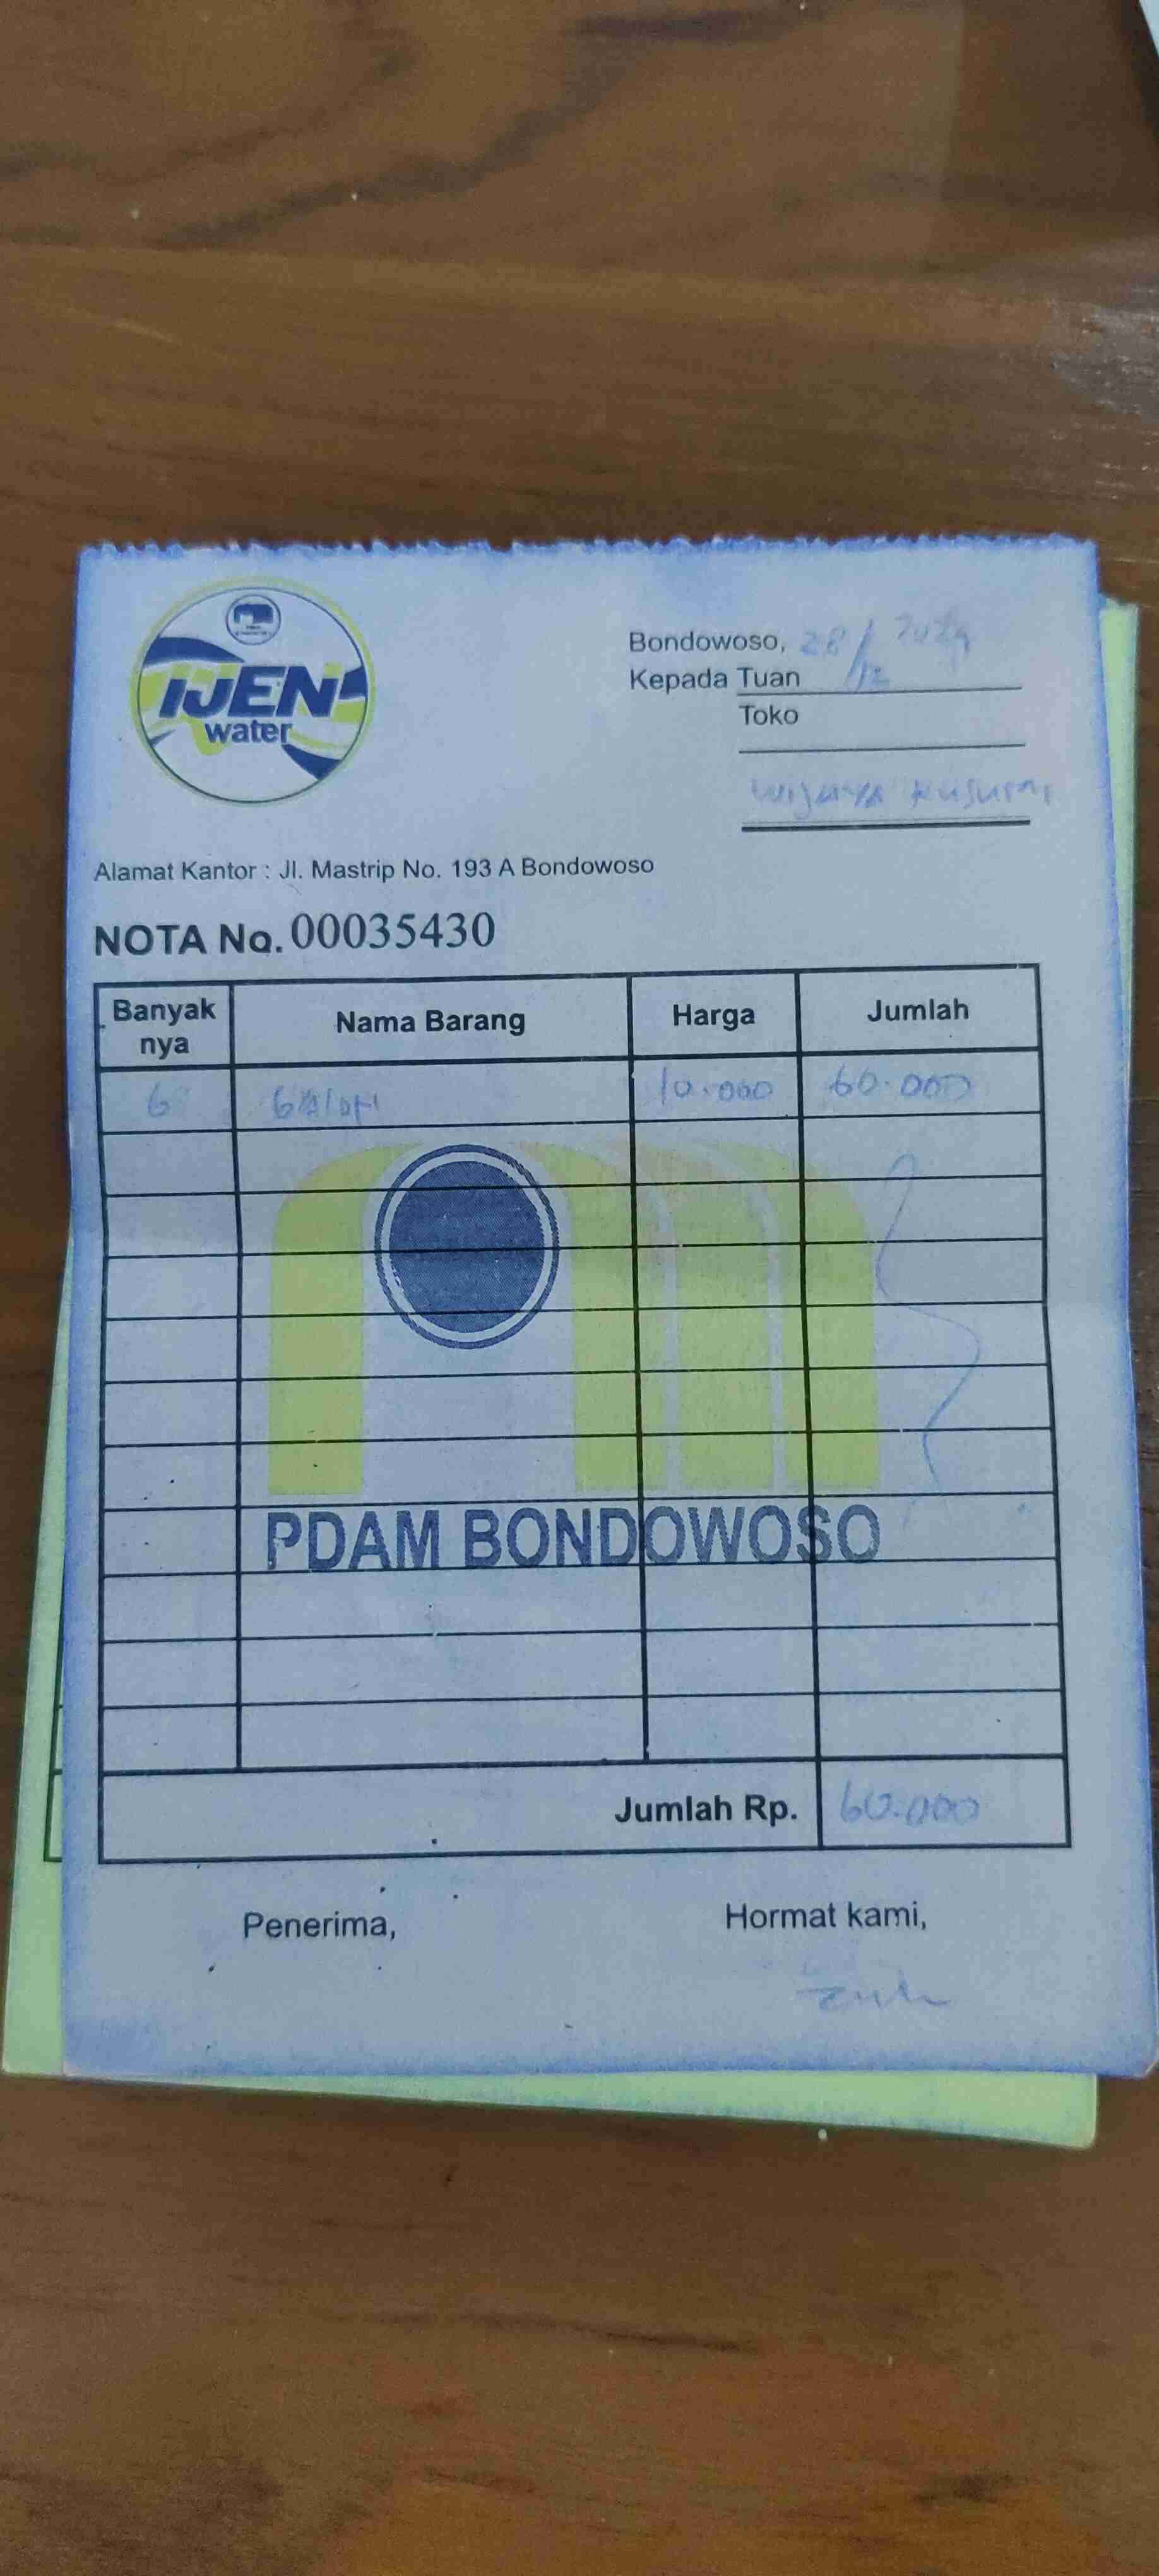 IJEN
water
Bondowoso, 28/12 2024
Kepada Tuan
Toko
Wijaya Kusuma
Alamat Kantor : Jl. Mastrip No. 193 A Bondowoso
NOTA No. 00035430
Banyak nya Nama Barang Harga Jumlah
6 Galon 10.000 60.000
PDAM BONDOWOSO
Jumlah Rp. 60.000
Penerima, Hormat kami,